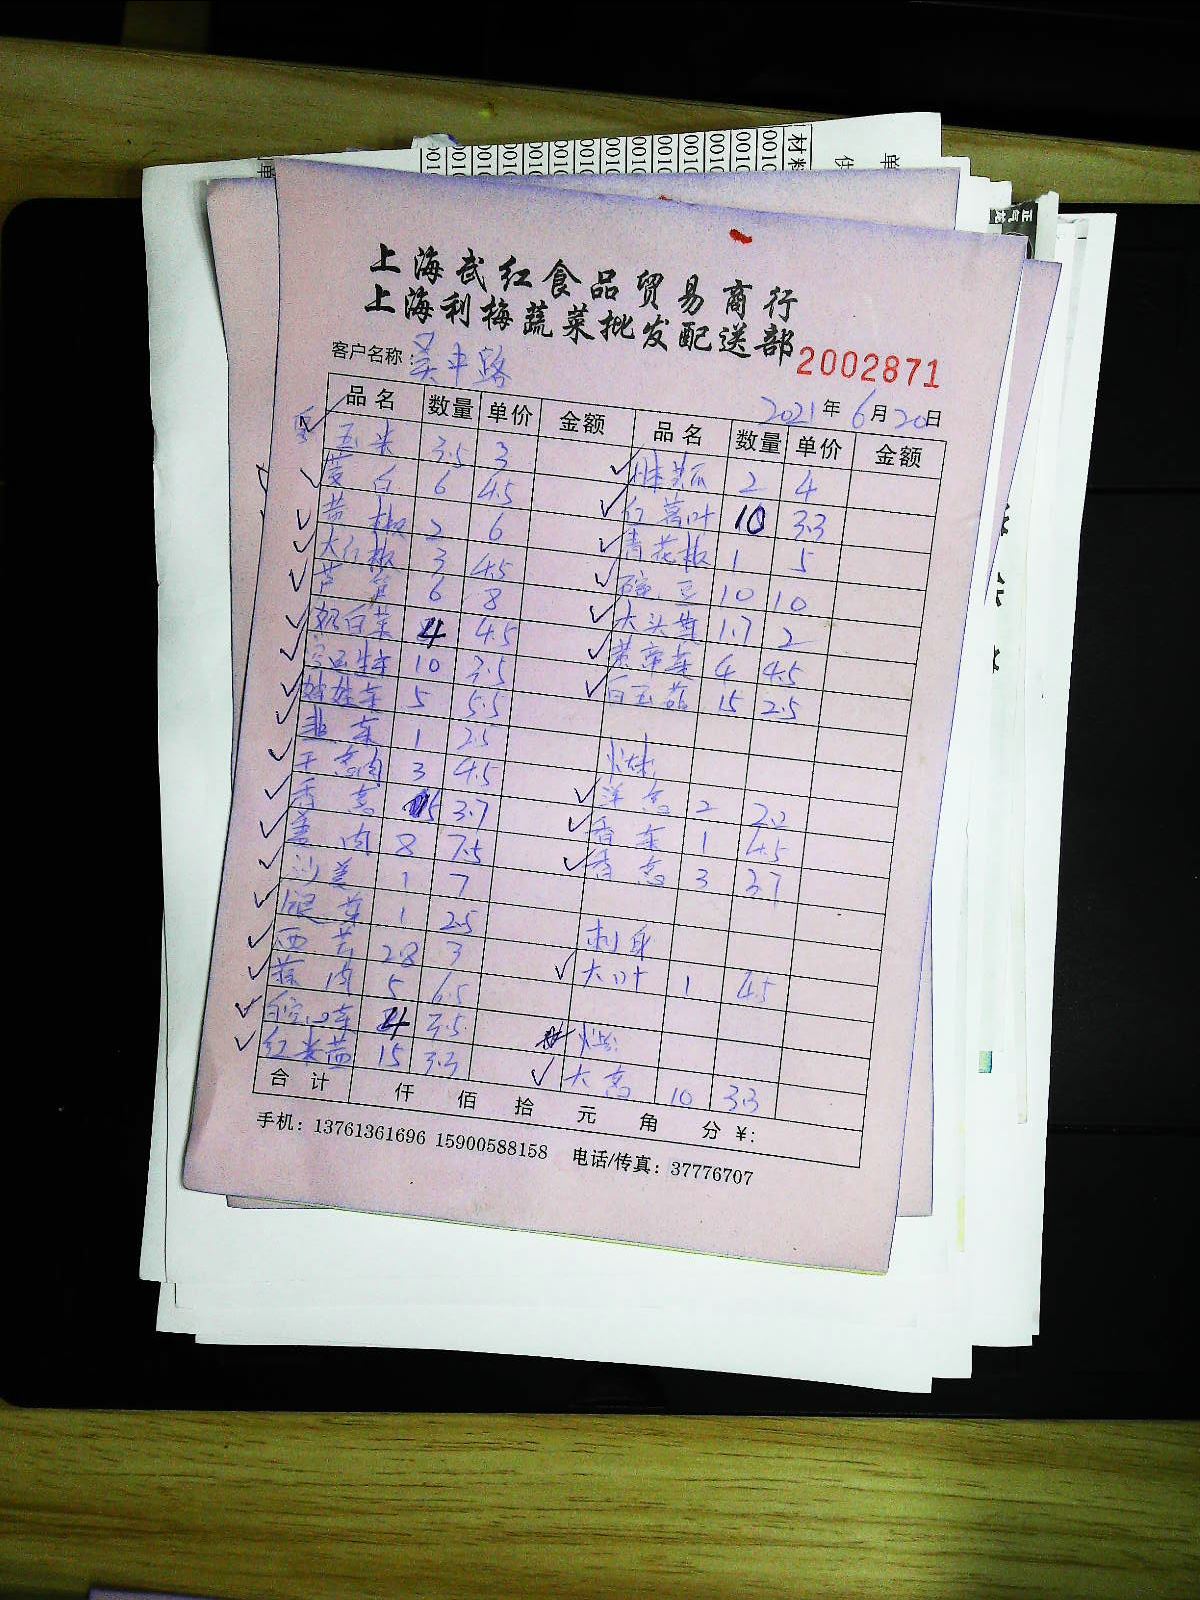 上海武红食品贸易商行
上海利梅蔬菜批发配送部
2002871
客户名称：吴中路
2021年6月20日
品名 数量 单价 金额 品名 数量 单价 金额
玉米 3.5 3
茭白 6 4.5 2 4
黄椒 2 6 红葱叶 10 3.3
大红椒 3 4.5 青花椒 1 5
芦笋 6 8 豌豆 10 10
奶白菜 4 4.5 大头菜 1.7 2
10 3.5 黄芽菜 4 4.5
娃娃菜 5 5.5 白玉菇 15 2.5
韭菜 1 2.5
干葱肉 3 4.5
香葱 15 3.7 洋葱 2 2.2
姜肉 8 7.5 香菜 1 4.5
沙姜 1 7 香葱 3 3.7
1 2.5
西芹 28 3 刺身
蒜肉 5 6.5 大叶 1 4.5
空心菜 4 3.5
红米苋 15 3.3 大葱 10 3.3
合计 仟 佰 拾 元 角 分 ¥:
手机：13761361696 15900588158 电话/传真：37776707